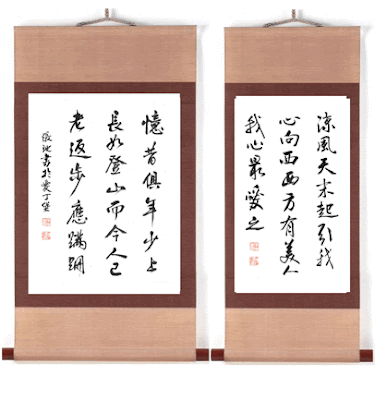 涼風天末起引我
心向西西方有美人
我心最愛之
憶昔俱年少上
長如登山而今人已
老返步應蹣跚
張 書於愛丁堡